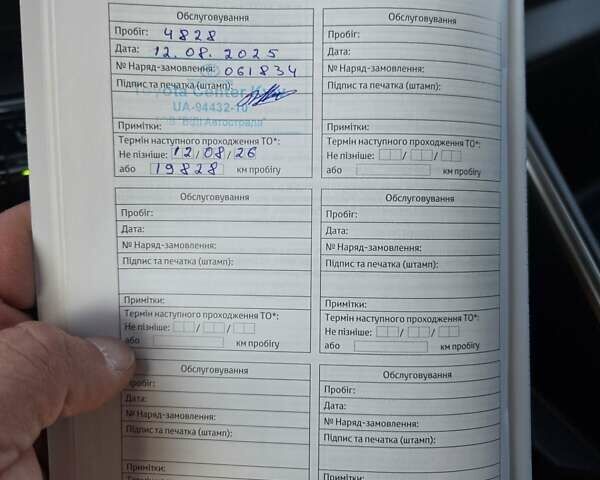 Обслуговування
Пробіг: 4828
Дата: 12.08.2025
№ Наряд-замовлення: 061834
Підпис та печатка (штамп):
Toyota Center
UA-94432-10
"ВіДі Автострада"
Примітки:
Термін наступного проходження ТО*:
Не пізніше: 12/08/26
або 19828 км пробігу
Обслуговування
Пробіг:
Дата:
№ Наряд-замовлення:
Підпис та печатка (штамп):
Примітки:
Термін наступного проходження ТО*:
Не пізніше: / /
або км пробігу
Обслуговування
Пробіг:
Дата:
№ Наряд-замовлення:
Підпис та печатка (штамп):
Примітки:
Термін наступного проходження ТО*:
Не пізніше: / /
або км пробігу
Обслуговування
Пробіг:
Дата:
№ Наряд-замовлення:
Підпис та печатка (штамп):
Примітки:
Термін наступного проходження ТО*:
Не пізніше: / /
або км пробігу
Обслуговування
Пробіг:
Дата:
№ Наряд-замовлення:
Підпис та печатка (штамп):
Примітки:
Обслуговування
Пробіг:
Дата:
№ Наряд-замовлення:
Підпис та печатка (штамп):
Примітки: